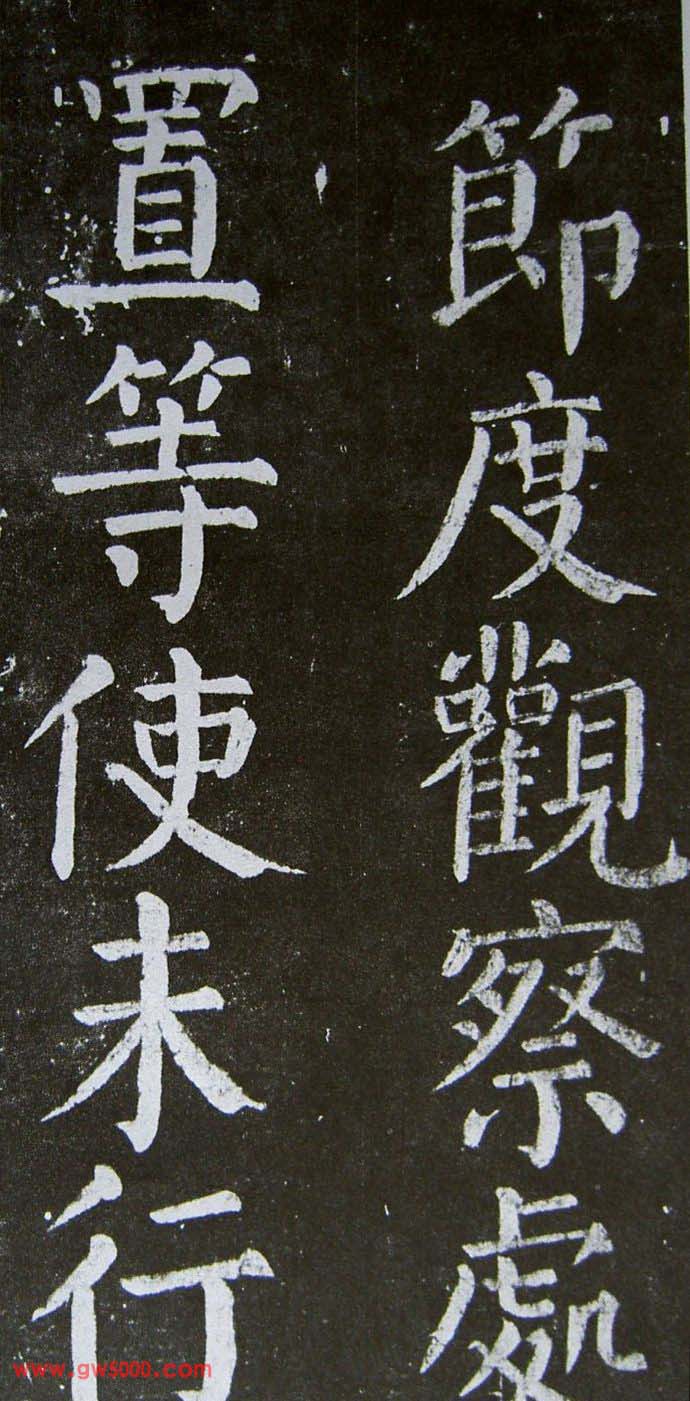 節度觀察處
置等使未行
www.gw5000.com